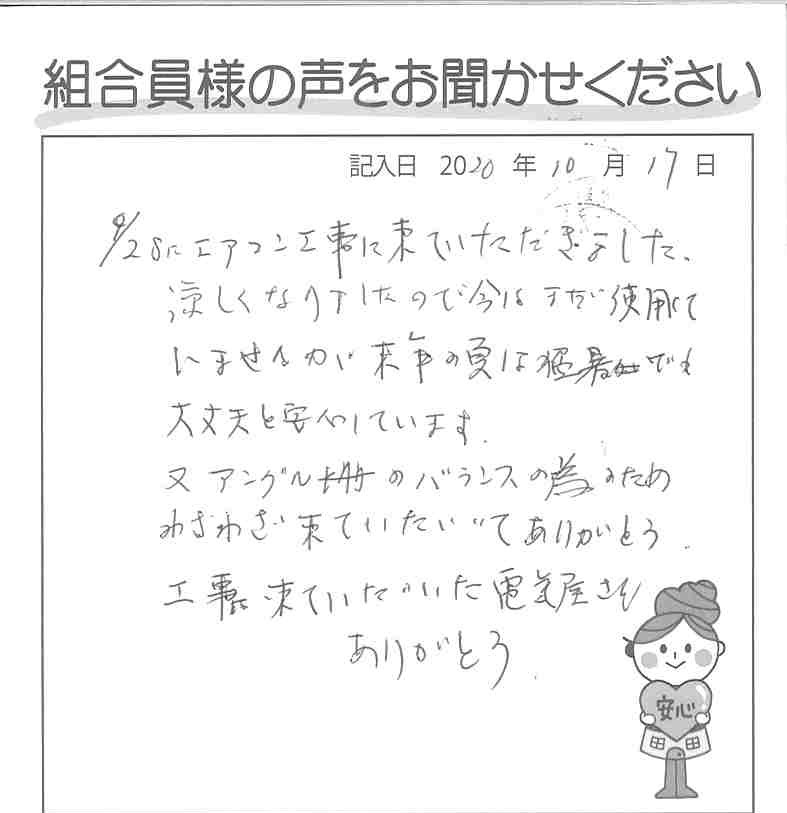 組合員様の声をお聞かせください
記入日 2020 年 10 月 17 日
9/28にエアコン工事に来ていただきました、
涼しくなりましたので今はまだ使用して
いませんが来年の夏は猛暑でも
大丈夫と安心しています。
又 アングル のバランスの為のため
わざわざ来ていただいてありがとう。
工事に来ていただいた電気屋さん
ありがとう。
安心